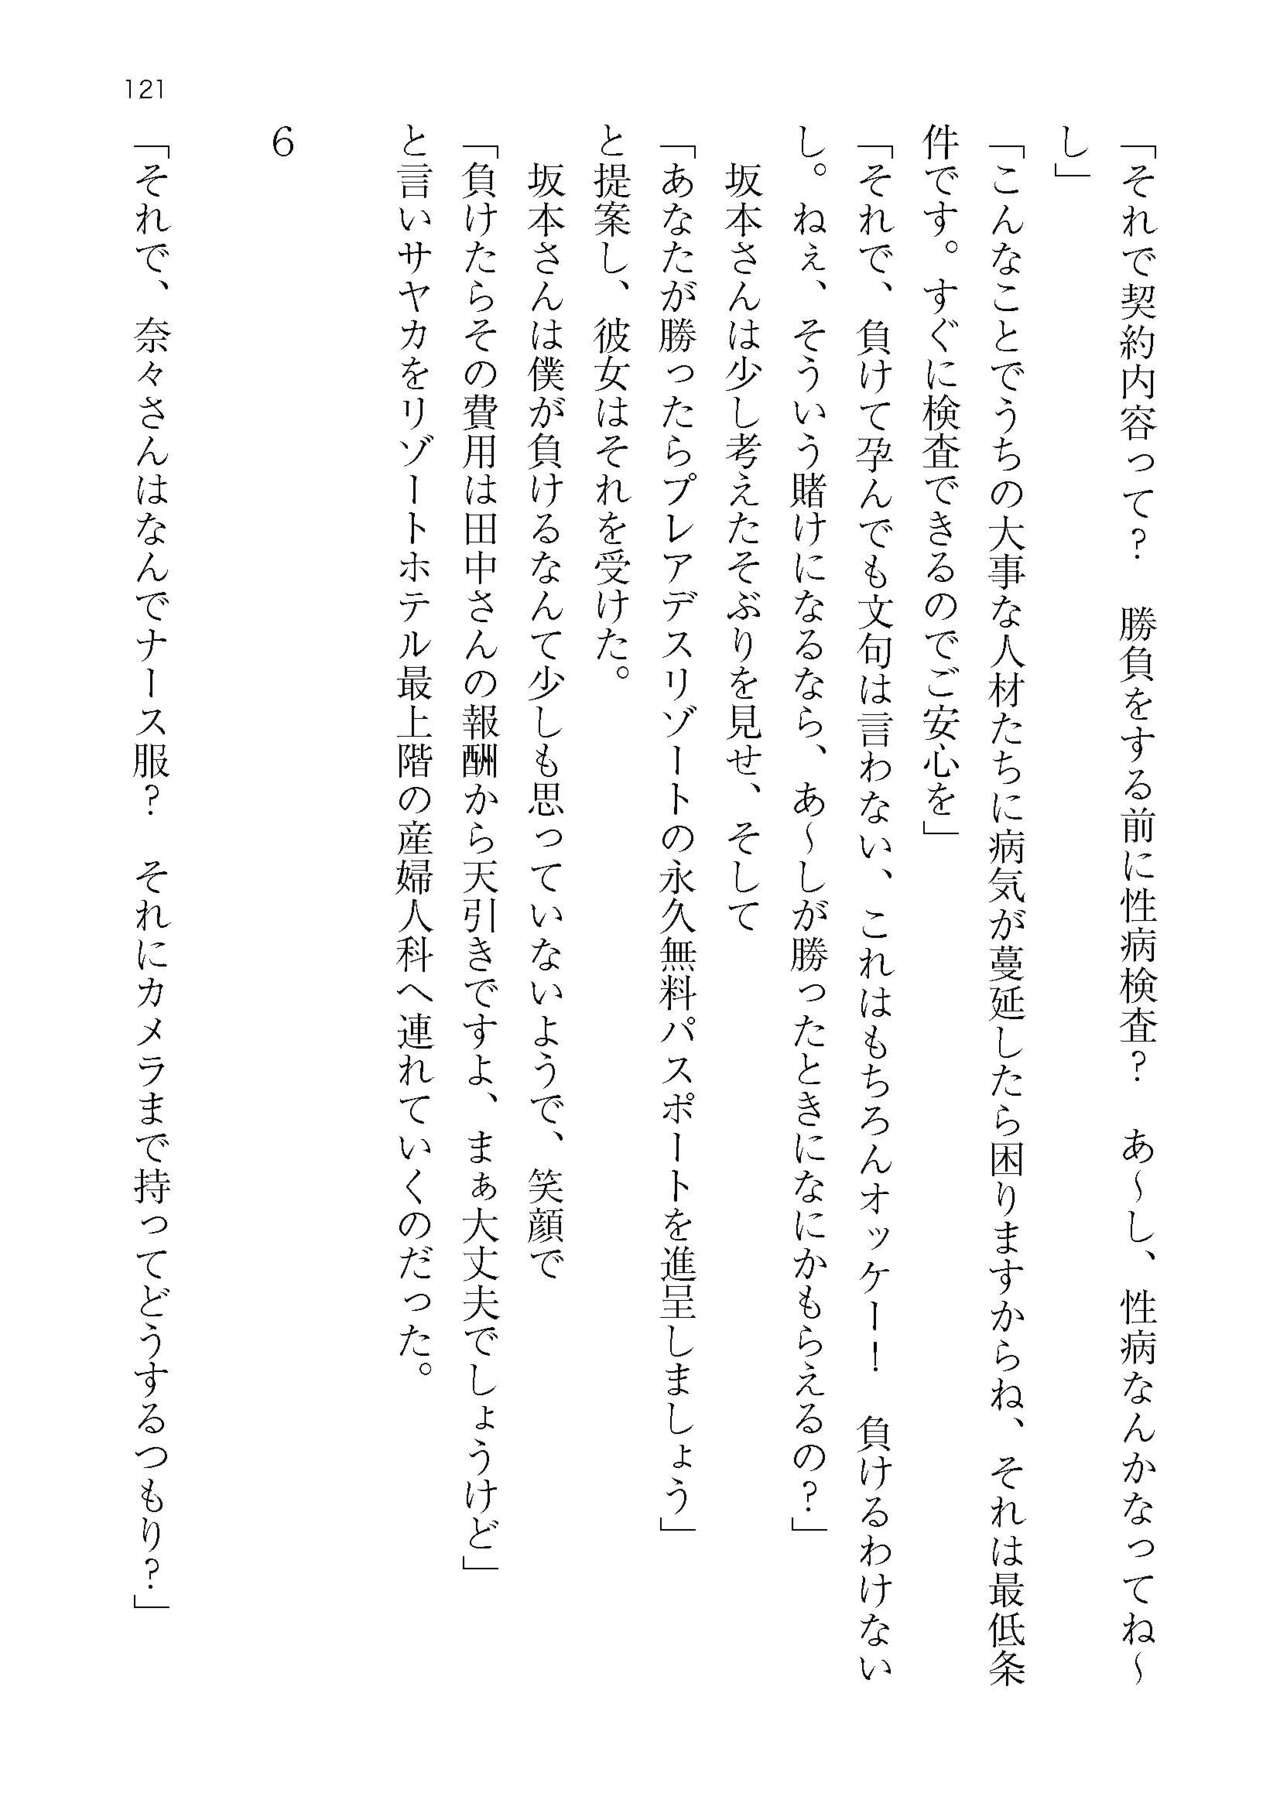 121
「それで契約内容って？　勝負をする前に性病検査？　あ～し、性病なんかなってね～
し」
「こんなことでうちの大事な人材たちに病気が蔓延したら困りますからね、それは最低条
件です。すぐに検査できるのでご安心を」
「それで、負けて孕んでも文句は言わない、これはもちろんオッケー！　負けるわけない
し。ねぇ、そういう賭けになるなら、あ～しが勝ったときになにかもらえるの？」
　坂本さんは少し考えたそぶりを見せ、そして
「あなたが勝ったらプレアデスリゾートの永久無料パスポートを進呈しましょう」
と提案し、彼女はそれを受けた。
　坂本さんは僕が負けるなんて少しも思っていないようで、笑顔で
「負けたらその費用は田中さんの報酬から天引きですよ、まぁ大丈夫でしょうけど」
と言いサヤカをリゾートホテル最上階の産婦人科へ連れていくのだった。
6
「それで、奈々さんはなんでナース服？　それにカメラまで持ってどうするつもり？」